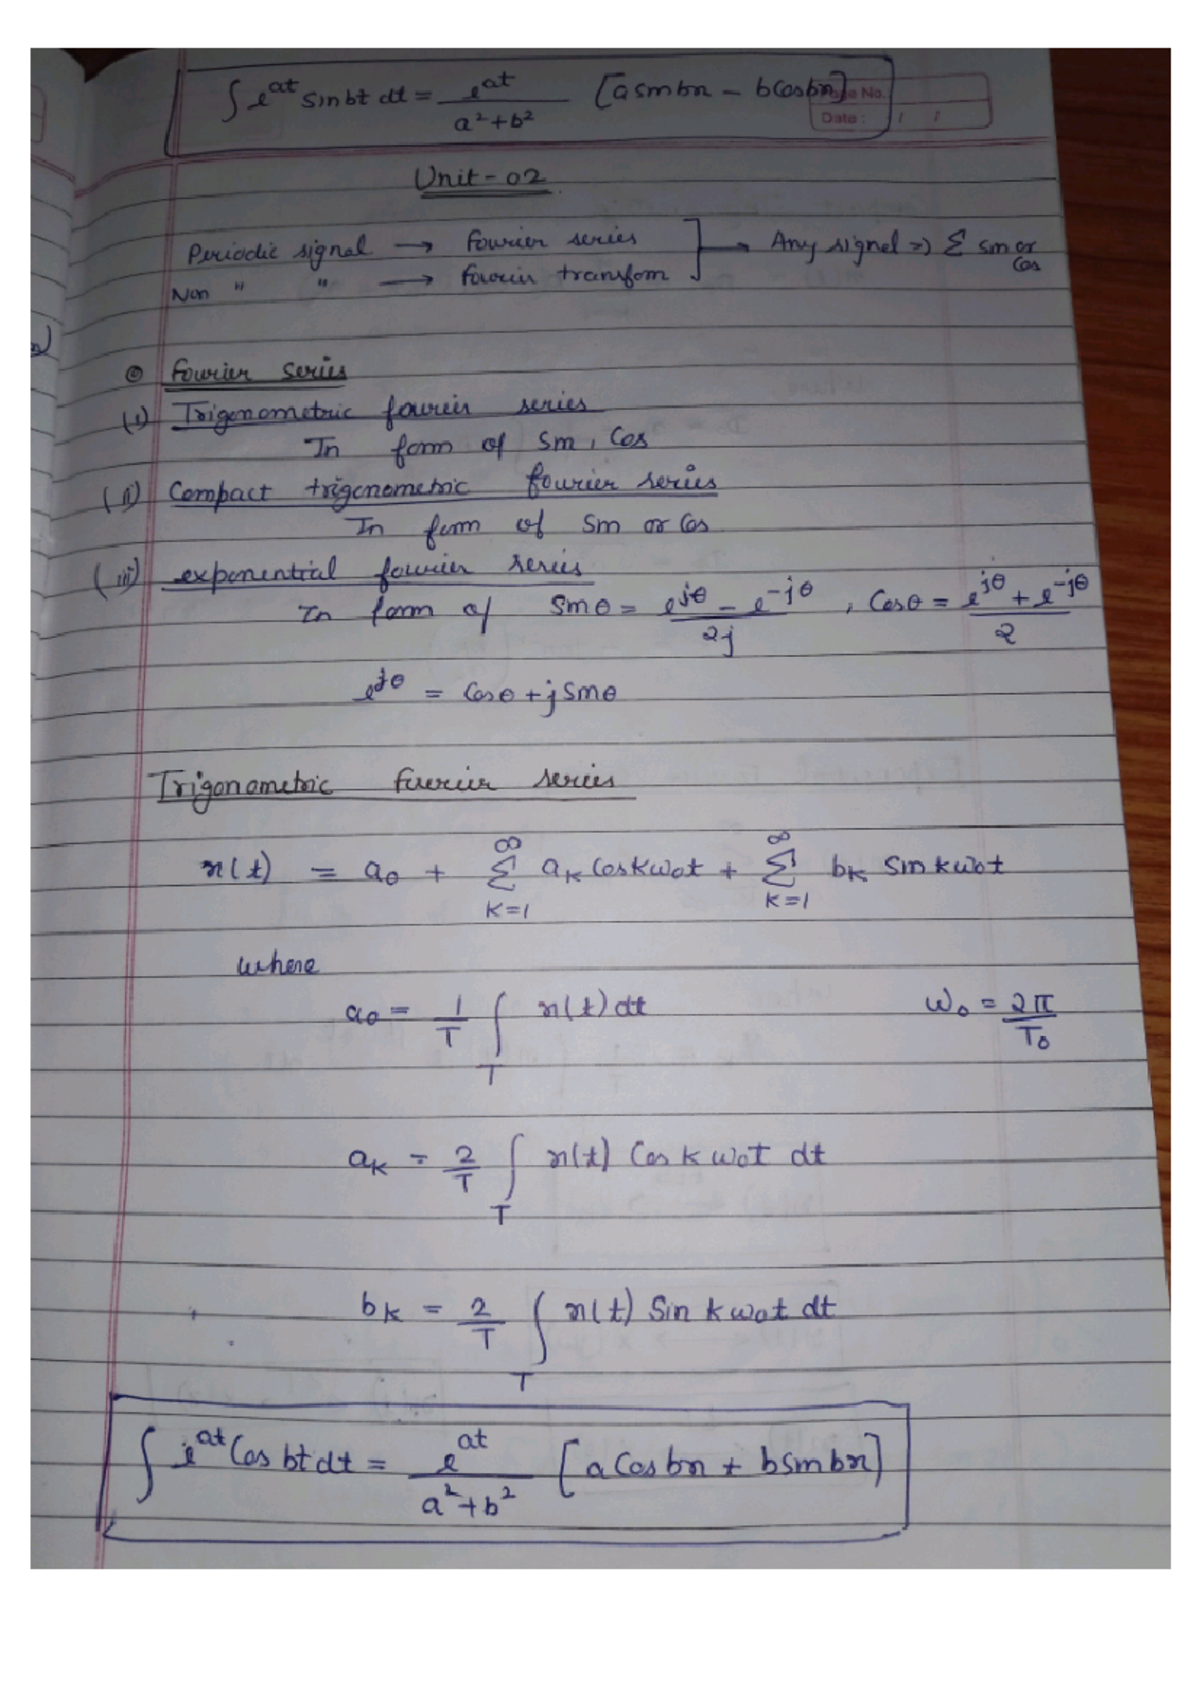 ∫ e^at sin bt dt = e^at / (a²+b²) [a sin bx - b cos bx]
Page No.
Date : / /
Unit-02
Periodic signal → fourier series
Non " " → fourier transform
→ Any signal => Σ sin or cos
⊙ Fourier series
(i) Trigonometric fourier series
In form of sin, Cos
(ii) Compact trigonometric fourier series
In form of sin or Cos
(iii) exponential fourier series
In form of sinθ = (e^jθ - e^-jθ) / 2j , Cosθ = (e^jθ + e^-jθ) / 2
e^jθ = Cosθ + j sinθ
Trigonometric fourier series
x(t) = a₀ + Σ_{K=1}^{∞} a_K Cos Kω₀t + Σ_{K=1}^{∞} b_K sin kω₀t
where
a₀ = 1/T ∫_T x(t) dt ω₀ = 2π/T₀
a_K = 2/T ∫_T x(t) Cos k ω₀t dt
b_K = 2/T ∫_T x(t) Sin k ω₀t dt
∫ e^at Cos bt dt = e^at / (a²+b²) [a Cos bx + b sin bx]